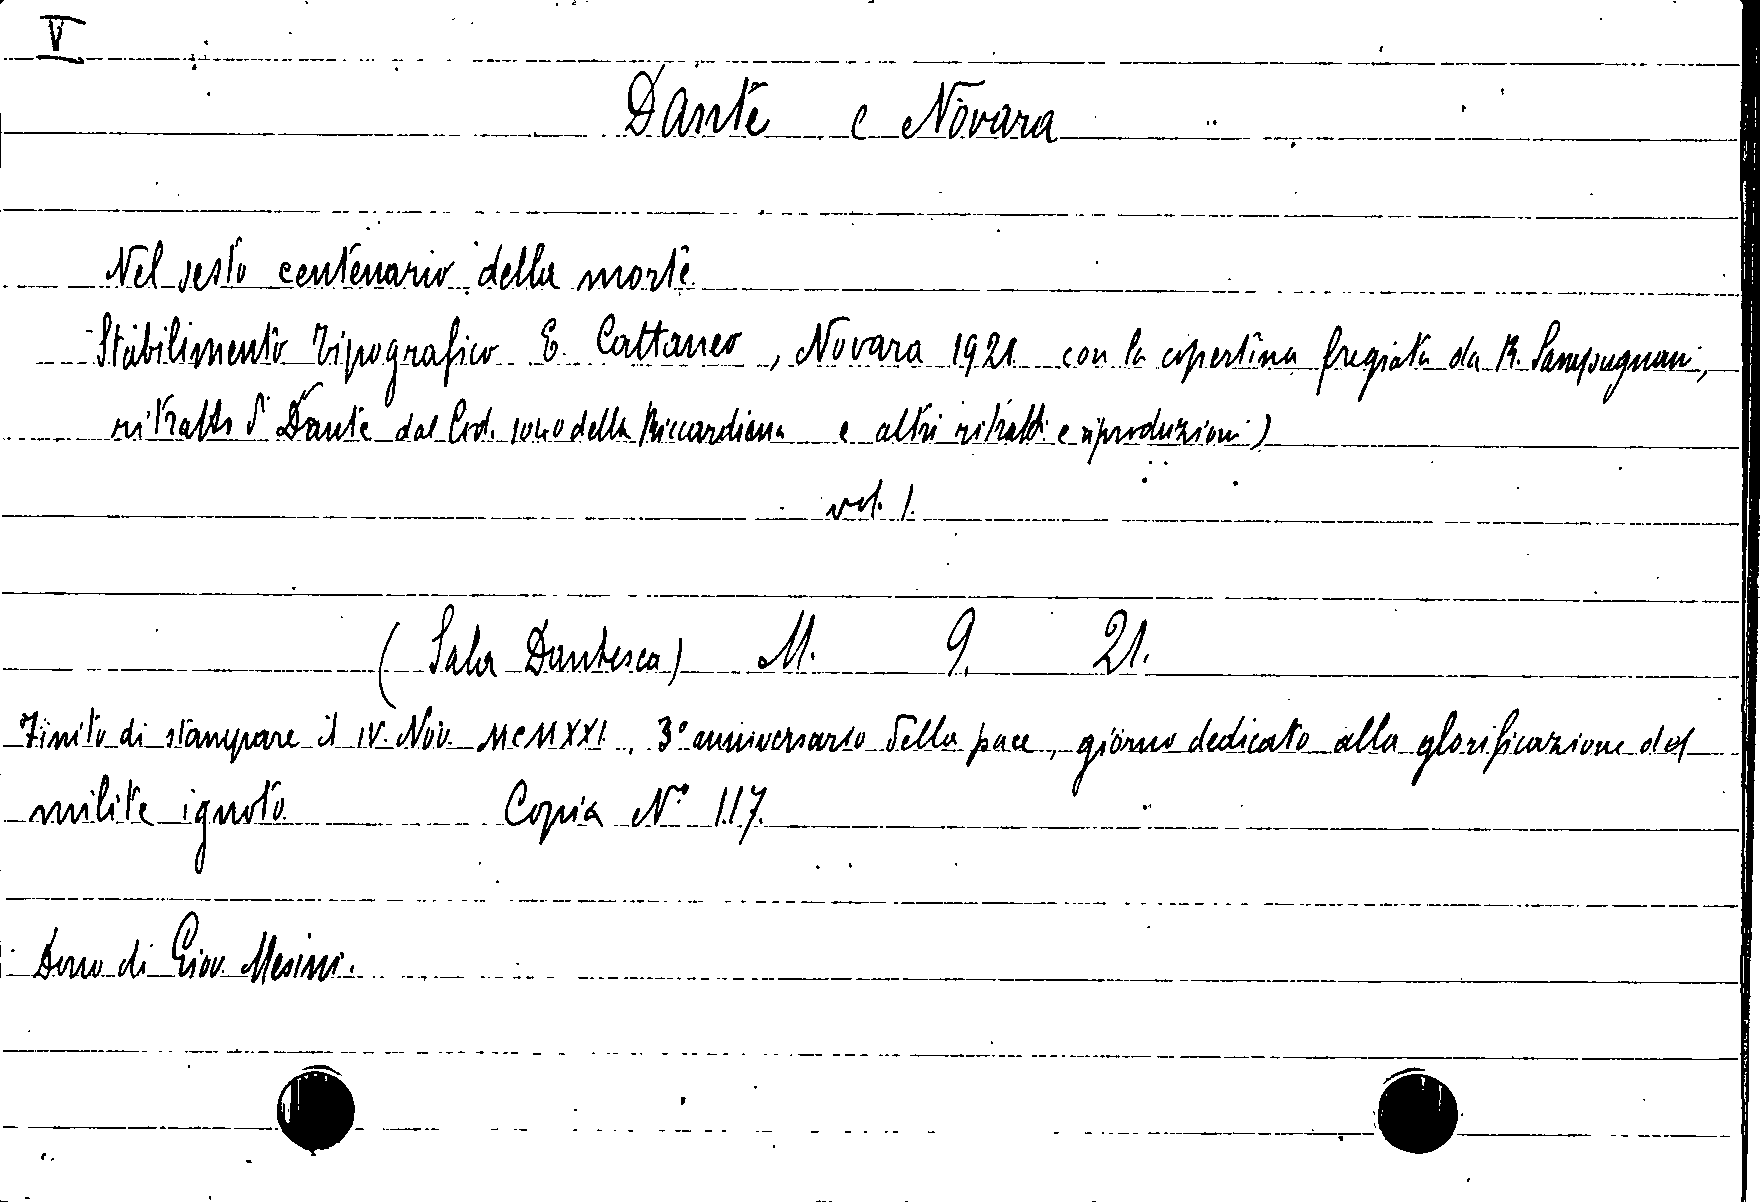 V
Dante e Novara
Nel sesto centenario della morte
Stabilimento Tipografico E. Cattaneo, Novara 1921 con la copertina fregiata da R. Sampugnani,
ritratto d' Dante dal Cod. 1040 della Riccardiana e altri ritratti e riproduzioni)
vol. 1.
(Sala Dantesca) M. 9. 21.
Finito di stampare il IV. Nov. MCMXXI, 3° anniversario della pace, giorno dedicato alla glorificazione del
milite ignoto Copia N° 117.
Dono di Giov. Mesini.